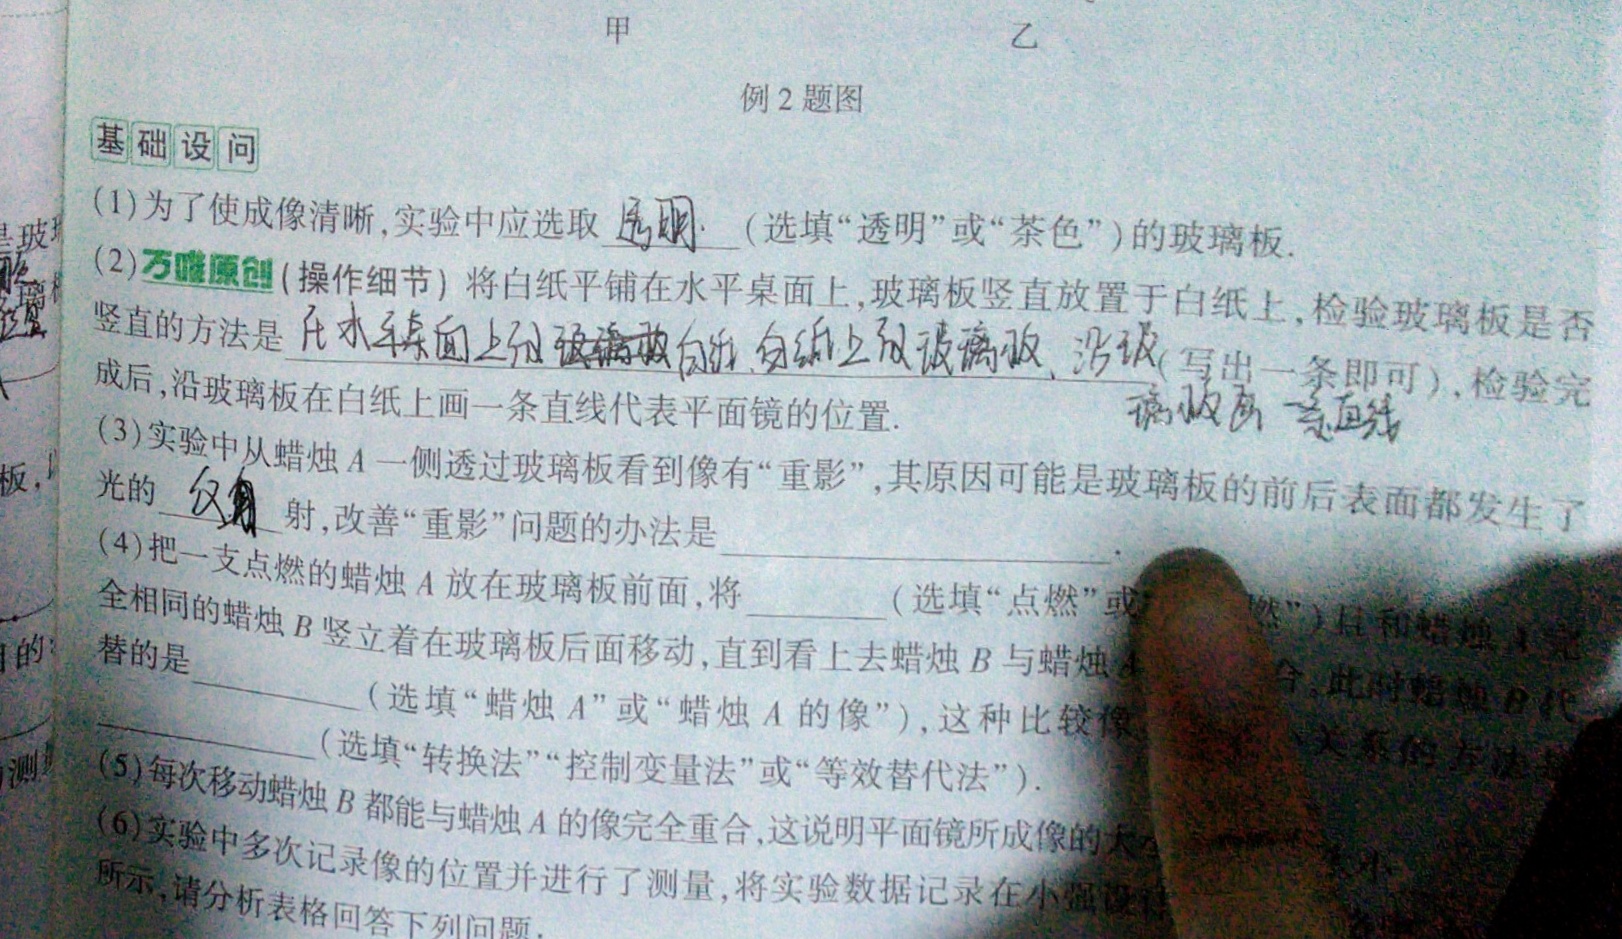 甲 乙
例2题图
基础设问
(1)为了使成像清晰,实验中应选取 透明 (选填“透明”或“茶色”)的玻璃板.
(2)万唯原创(操作细节)将白纸平铺在水平桌面上,玻璃板竖直放置于白纸上,检验玻璃板是否
竖直的方法是 在水平桌面上放 白纸、白纸上放玻璃板、沿玻 (写出一条即可),检验完
璃板画一条直线
成后,沿玻璃板在白纸上画一条直线代表平面镜的位置.
(3)实验中从蜡烛A一侧透过玻璃板看到像有“重影”,其原因可能是玻璃板的前后表面都发生了
光的 射,改善“重影”问题的办法是 .
(4)把一支点燃的蜡烛A放在玻璃板前面,将 (选填“点燃”或 燃”)且和蜡烛A完
全相同的蜡烛B竖立着在玻璃板后面移动,直到看上去蜡烛B与蜡烛 合,此时蜡烛B代
替的是 (选填“蜡烛A”或“蜡烛A的像”),这种比较像 关系的方法是
(选填“转换法”“控制变量法”或“等效替代法”).
(5)每次移动蜡烛B都能与蜡烛A的像完全重合,这说明平面镜所成像的大
(6)实验中多次记录像的位置并进行了测量,将实验数据记录在小强设
所示,请分析表格回答下列问题.